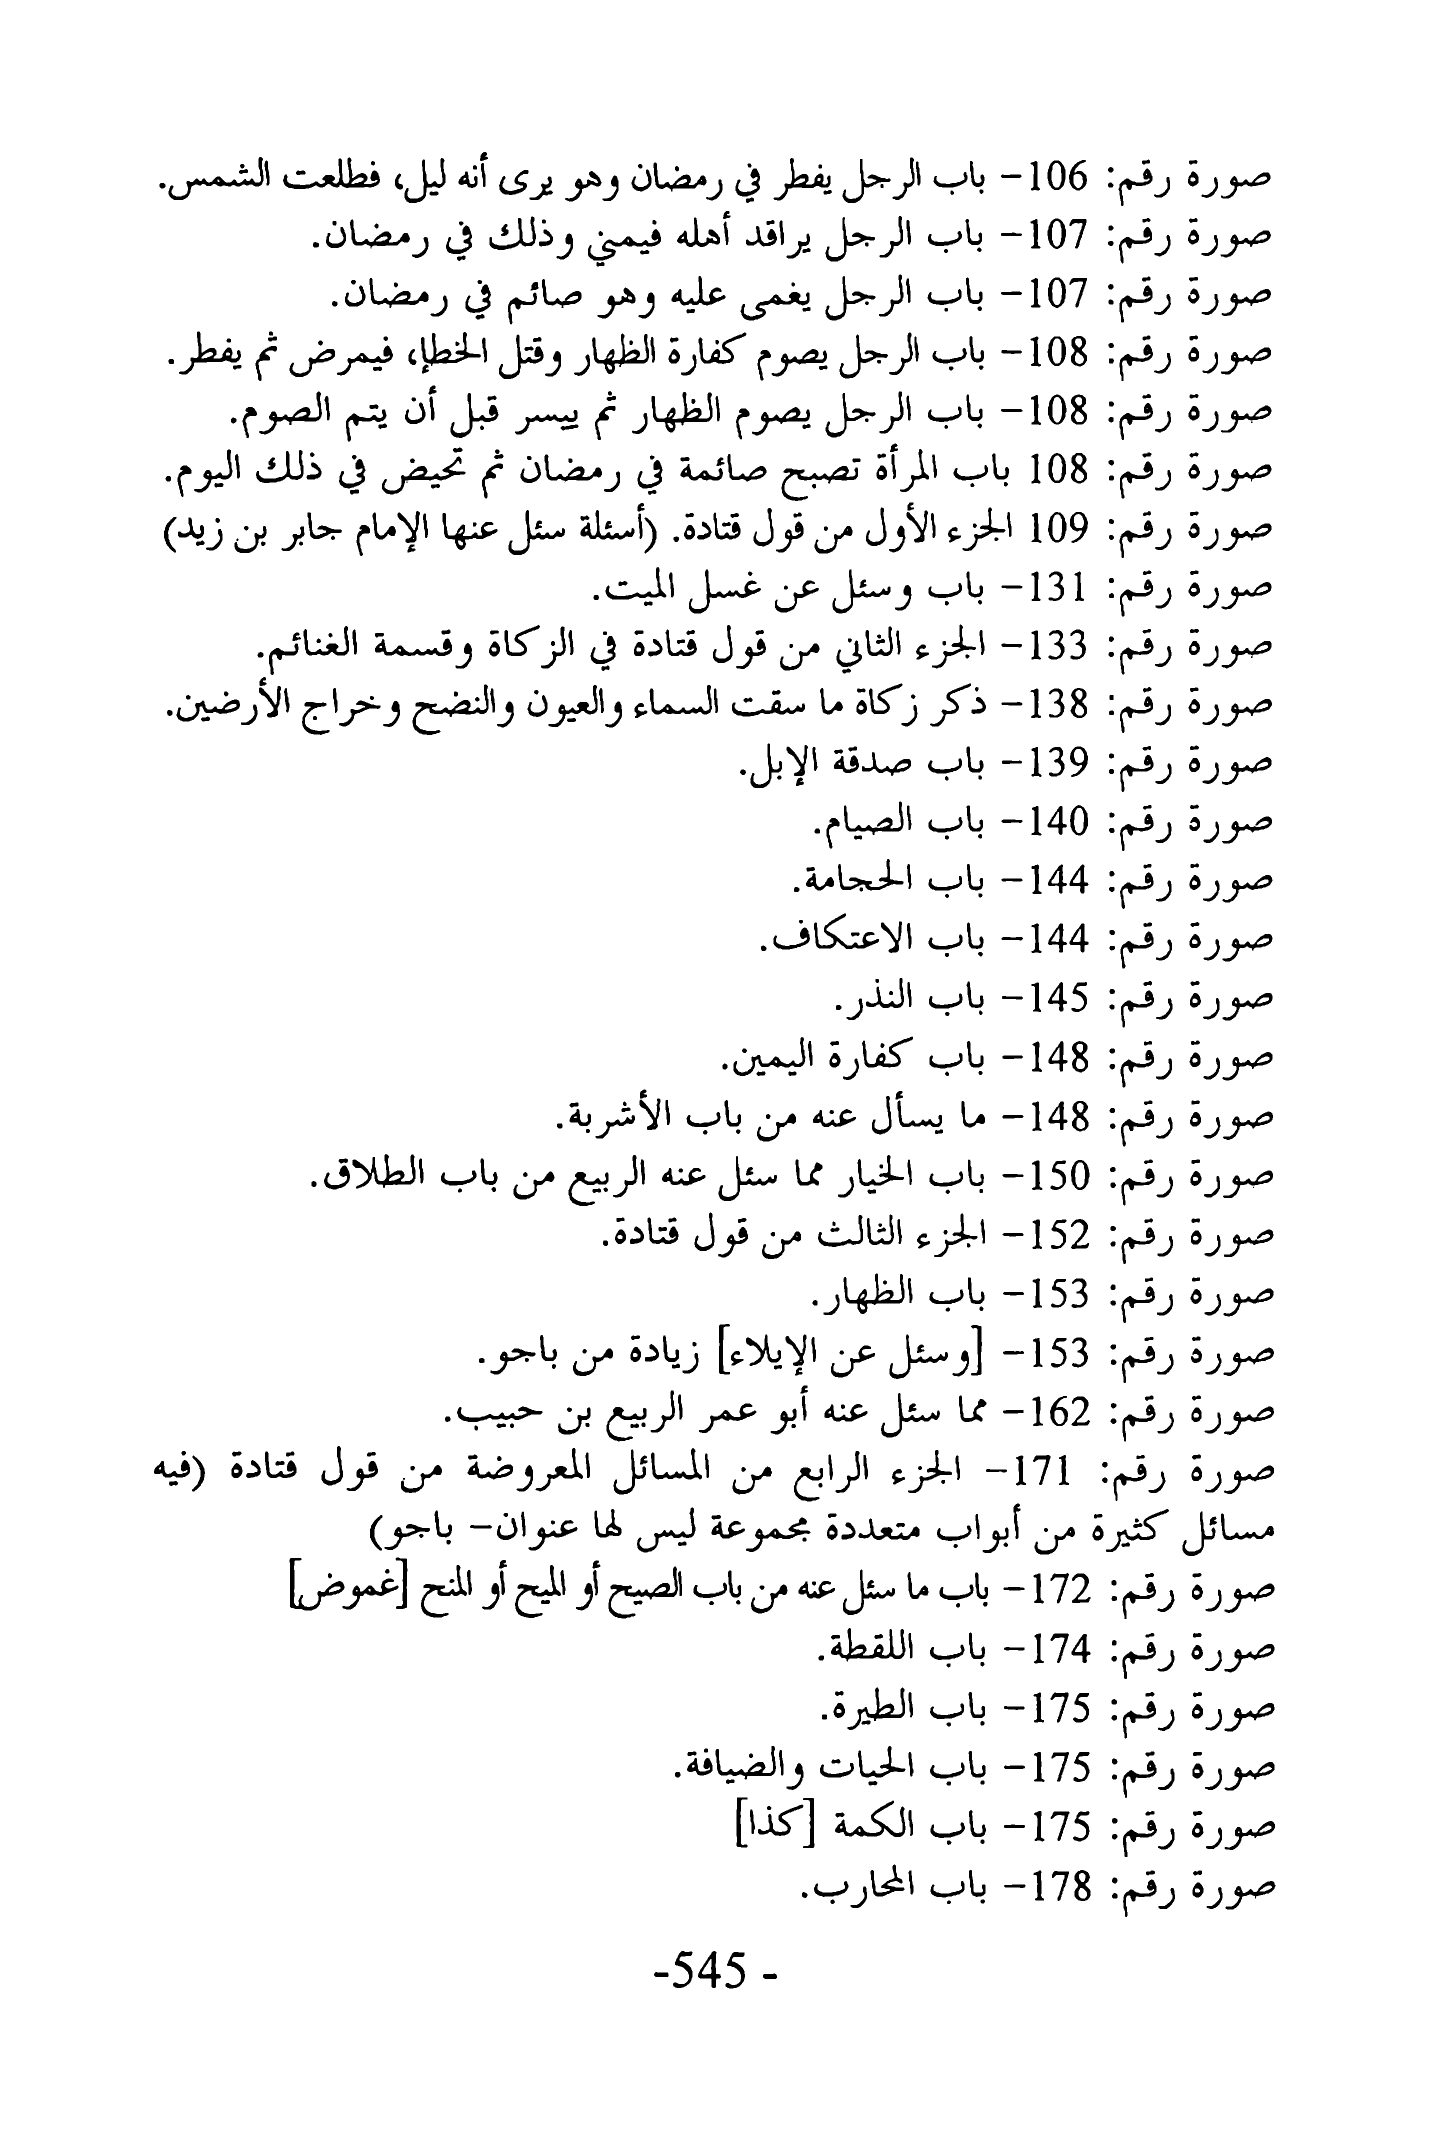 صورة رقم: 106- باب الرجل يفطر في رمضان وهو يرى أنه ليل، فطلعت الشمس.
صورة رقم: 107- باب الرجل يراقد أهله فيمني وذلك في رمضان.
صورة رقم: 107- باب الرجل يغمى عليه وهو صائم في رمضان.
صورة رقم: 108- باب الرجل يصوم كفارة الظهار وقتل الخطإ، فيمرض ثم يفطر.
صورة رقم: 108- باب الرجل يصوم الظهار ثم ييسر قبل أن يتم الصوم.
صورة رقم: 108 باب المرأة تصبح صائمة في رمضان ثم تحيض في ذلك اليوم.
صورة رقم: 109 الجزء الأول من قول قتادة. (أسئلة سئل عنها الإمام جابر بن زيد)
صورة رقم: 131- باب وسئل عن غسل الميت.
صورة رقم: 133- الجزء الثاني من قول قتادة في الزكاة وقسمة الغنائم.
صورة رقم: 138- ذكر زكاة ما سقت السماء والعيون والنضح وخراج الأرضين.
صورة رقم: 139- باب صدقة الإبل.
صورة رقم: 140- باب الصيام.
صورة رقم: 144- باب الحجامة.
صورة رقم: 144- باب الاعتكاف.
صورة رقم: 145- باب النذر.
صورة رقم: 148- باب كفارة اليمين.
صورة رقم: 148- ما يسأل عنه من باب الأشربة.
صورة رقم: 150- باب الخيار مما سئل عنه الربيع من باب الطلاق.
صورة رقم: 152- الجزء الثالث من قول قتادة.
صورة رقم: 153- باب الظهار.
صورة رقم: 153- [وسئل عن الإيلاء] زيادة من باجو.
صورة رقم: 162- مما سئل عنه أبو عمر الربيع بن حبيب.
صورة رقم: 171- الجزء الرابع من المسائل المعروضة من قول قتادة (فيه
مسائل كثيرة من أبواب متعددة مجموعة ليس لها عنوان- باجو)
صورة رقم: 172- باب ما سئل عنه من باب الصيح أو الميح أو المنح [غموض]
صورة رقم: 174- باب اللقطة.
صورة رقم: 175- باب الطيرة.
صورة رقم: 175- باب الحيات والضيافة.
صورة رقم: 175- باب الكمة [كذا]
صورة رقم: 178- باب المحارب.
- 545-